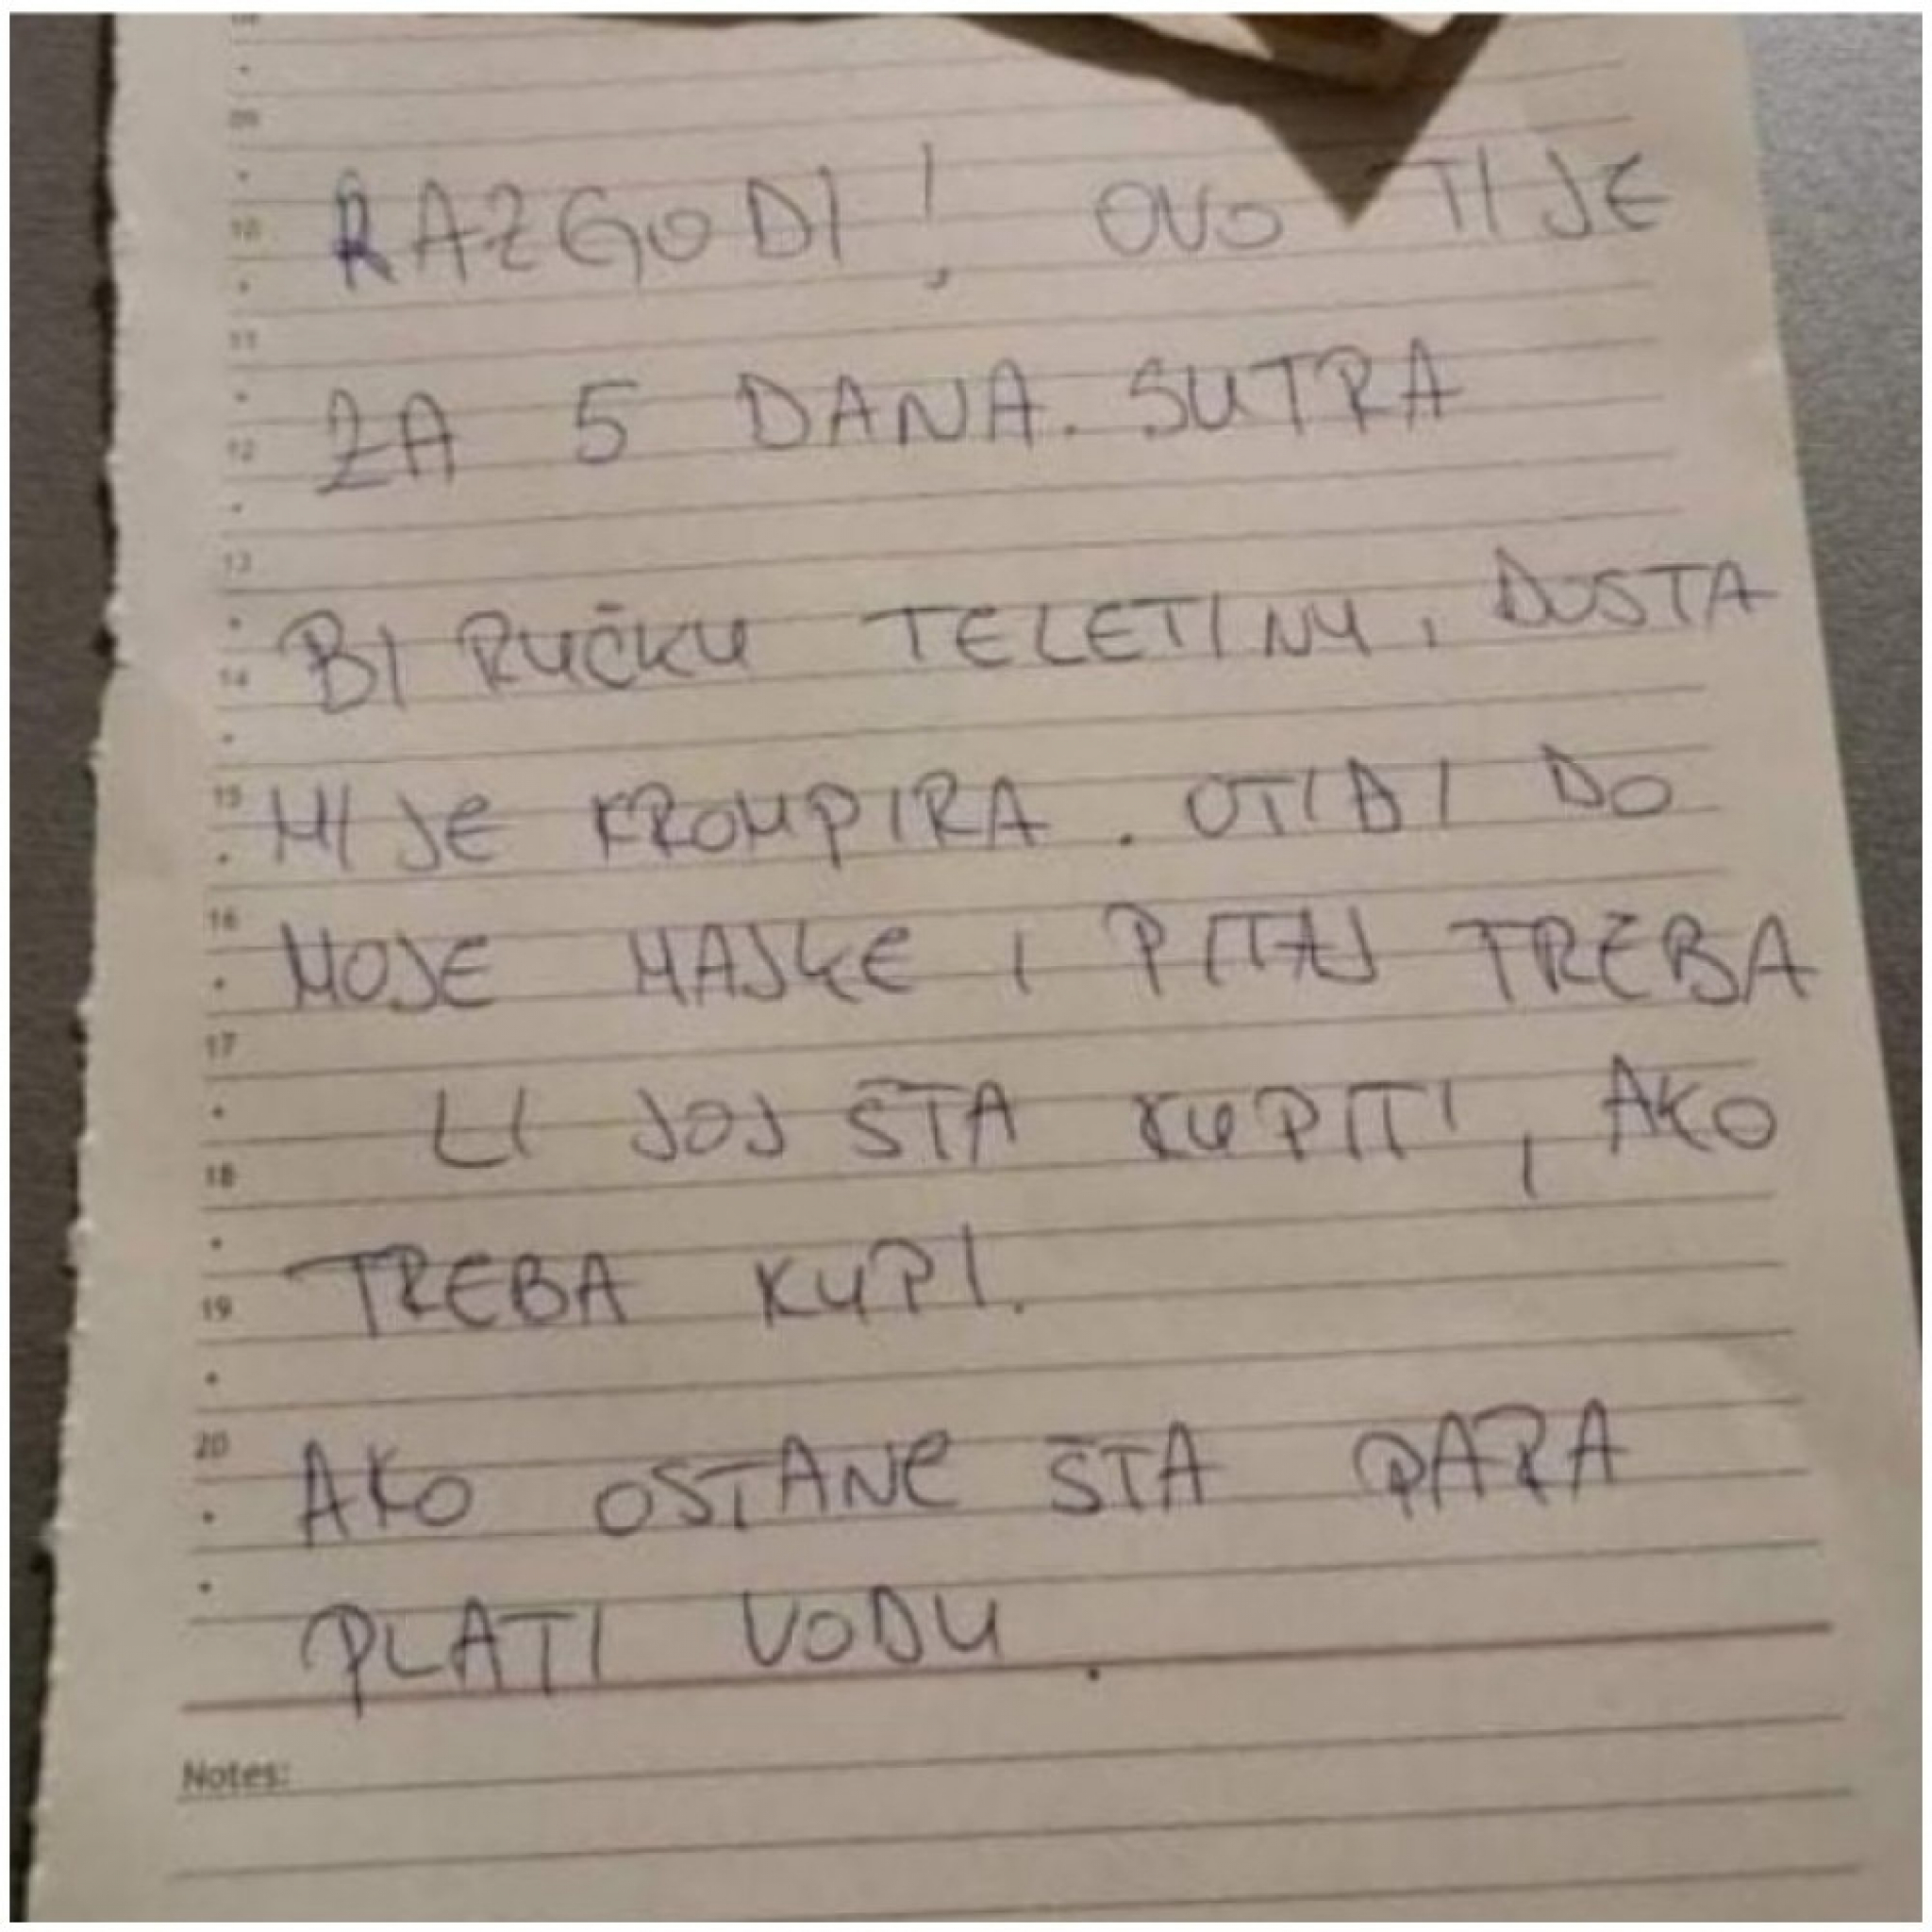 09
10 RAZGODI! OVO TI JE
11
12 ZA 5 DANA. SUTRA
13
14 BI RUČKU TELETINU, DOSTA
15 MI JE KROMPIRA. OTIĐI DO
16 MOJE MAJKE I PITAJ TREBA
17
18 LI JOJ ŠTA KUPITI, AKO
19 TREBA KUPI.
20 AKO OSTANE ŠTA PARA
PLATI VODU.
Notes: